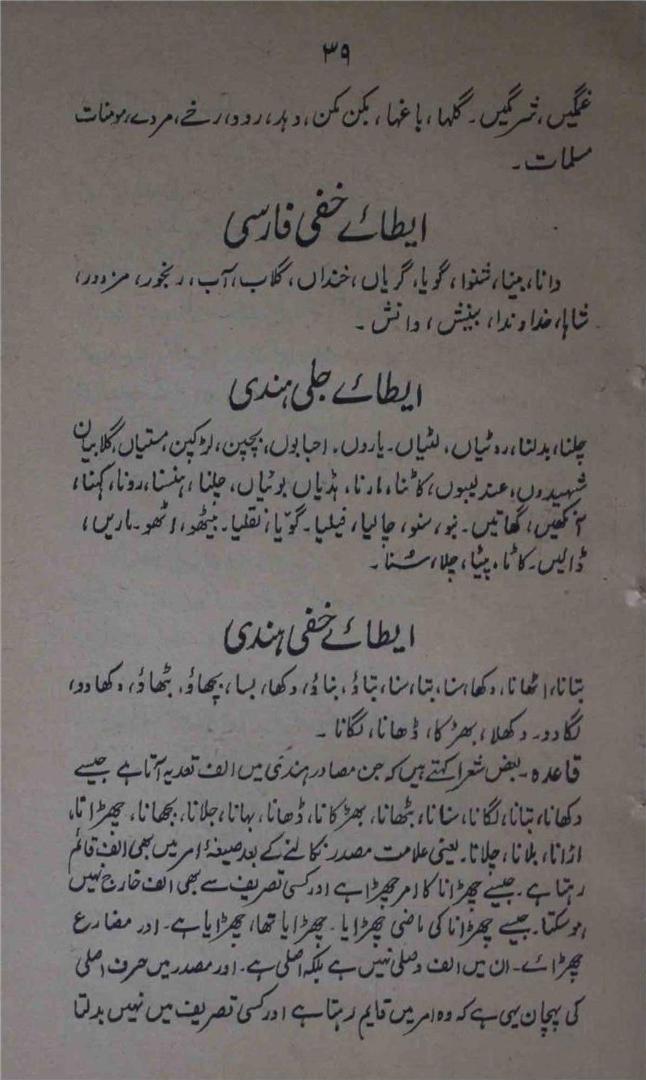 ۳۹
غمگیں، شرمگیں۔ گلہا، باغہا، بکن مکن، دہد، رود، رخے، مردے، مومنات
مسلمات۔
ایطائے خفی فارسی
دانا، بینا، شنوا، گویا، گریاں، خنداں، گلاب، آب، رنجور، مزدور،
شاہا، خداوندا، بینش، دانش۔
ایطائے جلی ہندی
چلنا، بدلنا، روٹیاں، لٹیاں۔ یاروں۔ احبابوں، بچپن، لڑکپن، مستیاں، گلابیاں
شہیدوں، عندلیبوں، کاٹنا، مارنا، ہڈیاں بوٹیاں، چلنا، ہنسنا، رونا، کہنا،
آنکھیں، گھاتیں۔ سنو، جالیا، گویا، نقلیا۔ بیٹھو، اٹھو۔ ماریں،
ڈالیں۔ کاٹا، پیٹا، چلا، سنا۔
ایطائے خفی ہندی
بتانا، اٹھانا، دکھا، سنا، بتا، سنا، بتاؤ، بناؤ، دکھا، بسا، بچھاؤ، بٹھاؤ، دکھادو،
لگادو۔ دکھلا، بھڑکا، ڈھانا، لگانا۔
قاعدہ۔ بعض شعرا کہتے ہیں کہ جن مصادر ہندی میں الف تعدیہ آتا ہے جیسے
دکھانا، بتانا، لگانا، سنانا، بٹھانا، بھڑکانا، ڈھانا، بہانا، جلانا، بجھانا، چھڑانا،
اڑانا، بلانا، چلانا۔ یعنی علامت مصدر نکالنے کے بعد صیغۂ امر میں بھی الف قائم
رہتا ہے۔ جیسے چھڑانا کا امر چھڑا ہے اور کسی تصریف سے بھی الف خارج نہیں
ہوسکتا۔ جیسے چھڑانا کی ماضی چھڑایا۔ چھڑایا تھا، چھڑایا ہے۔ اور مضارع
چھڑائے۔ ان میں الف وصلی نہیں ہے بلکہ اصلی ہے۔ اور مصدر میں حرف اصلی
کی پہچان یہی ہے کہ وہ امر میں قایم رہتا ہے اور کسی تصریف میں نہیں بدلتا